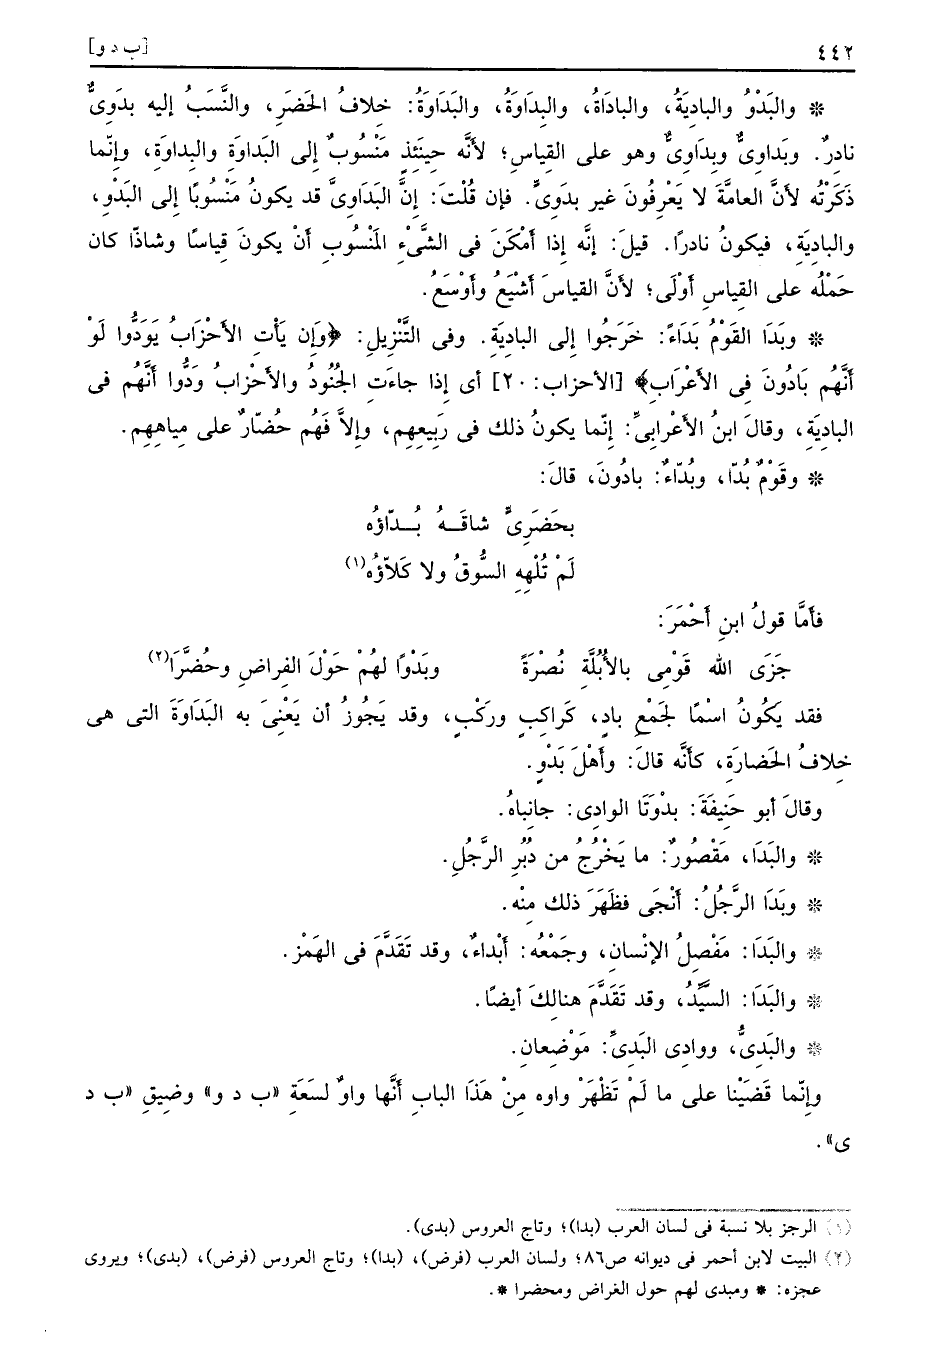 ٤٤٢ [ب د و]
* والبَدْوُ والبادِيَةُ، والباداةُ، والبِداوَةُ، والبَدَاوَةُ: خلافُ الحَضَرِ، والنَّسَبُ إليه بدَوِىٌّ
نادرٌ. وبَداوِىٌّ وبِدَاوِىٌّ وهو على القياس؛ لأنَّه حينَئذٍ مَنْسوبٌ إلى البَداوَةِ والبِداوَةِ، وإنَّما
ذَكَرْتُه لأنَّ العامَّةَ لا يَعْرِفُونَ غير بدَوِىٍّ. فإن قُلْتَ: إنَّ البَدَاوِىَّ قد يكون مَنْسُوبًا إلى البَدْوِ،
والبادِيَةِ، فيكونُ نادرًا. قيلَ: إنَّه إذا أمْكَنَ فى الشَّىْءِ المَنْسُوبِ أنْ يكونَ قياسًا وشاذّا كان
حَمْلُه على القِياسِ أوْلَى؛ لأنَّ القياسَ أشْيَعُ وأوْسَعُ.
* وبَدَا القَوْمُ بَدَاءً: خَرَجُوا إلى البادِيَةِ. وفى التَّنْزِيلِ: ﴿وَإن يَأْتِ الأَحْزَابُ يَوَدُّوا لَوْ
أَنَّهُم بَادُونَ فِى الأَعْرَابِ﴾ [الأحزاب: ٢٠] أى إذا جاءَتِ الجُنُودُ والأحْزابُ وَدُّوا أنَّهُم فى
البادِيَةِ، وقالَ ابنُ الأعْرابىِّ: إنّما يكونُ ذلك فى رَبِيعِهِم، وإلاَّ فَهُم حُضّارٌ على مِياهِهِم.
* وقَوْمٌ بُدّا، وبُدّاءٌ: بادُونَ، قالَ:
بحَضَرِىٍّ شاقَـهُ بُـدّاؤُه
لَمْ تُلْهِهِ السُّوقُ ولا كَلاّؤُه(١)
فأمَّا قولُ ابنِ أحْمَرَ:
جَزَى الله قَوْمِى بالأُبُلَّةِ نُصْرَةً وبَدْوًا لهُمْ حَوْلَ الفِراضِ وحُضَّرَا(٢)
فقد يَكُونُ اسْمًا لجَمْعِ بادٍ، كَراكِبٍ ورَكْبٍ، وقد يَجُوزُ أن يَعْنِىَ به البَدَاوَةَ التى هى
خِلافُ الحَضارَةِ، كأنَّه قالَ: وأهْلَ بَدْوٍ.
وقالَ أبو حَنِيفَةَ: بدْوَتَا الوادِى: جانِباهُ.
* والبَدَا، مَقْصُورٌ: ما يَخْرُجُ من دُبُرِ الرَّجُلِ.
* وبَدَا الرَّجُلُ: أنْجَى فظَهَرَ ذلك مِنْه.
* والبَدَا: مَفْصِلُ الإنْسانِ، وجَمْعُه: أبْداءٌ، وقد تَقَدَّمَ فى الهَمْزِ.
* والبَدَا: السَّيِّدُ، وقد تَقَدَّمَ هنالِكَ أيضًا.
* والبَدِىُّ، ووادِى البَدِىِّ: مَوْضِعانِ.
وإنَّما قَضَيْنا على ما لَمْ تَظْهَرْ واوه مِنْ هَذَا البابِ أنَّها واوٌ لسَعَةِ «ب د و» وضِيقِ «ب د
ى».
(١) الرجز بلا نسبة فى لسان العرب (بدا)؛ وتاج العروس (بدى).
(٢) البيت لابن أحمر فى ديوانه ص٨٦؛ ولسان العرب (فرض)، (بدا)؛ وتاج العروس (فرض)، (بدى)؛ ويروى
عجزه: * ومبدى لهم حول الغراض ومحضرا *.